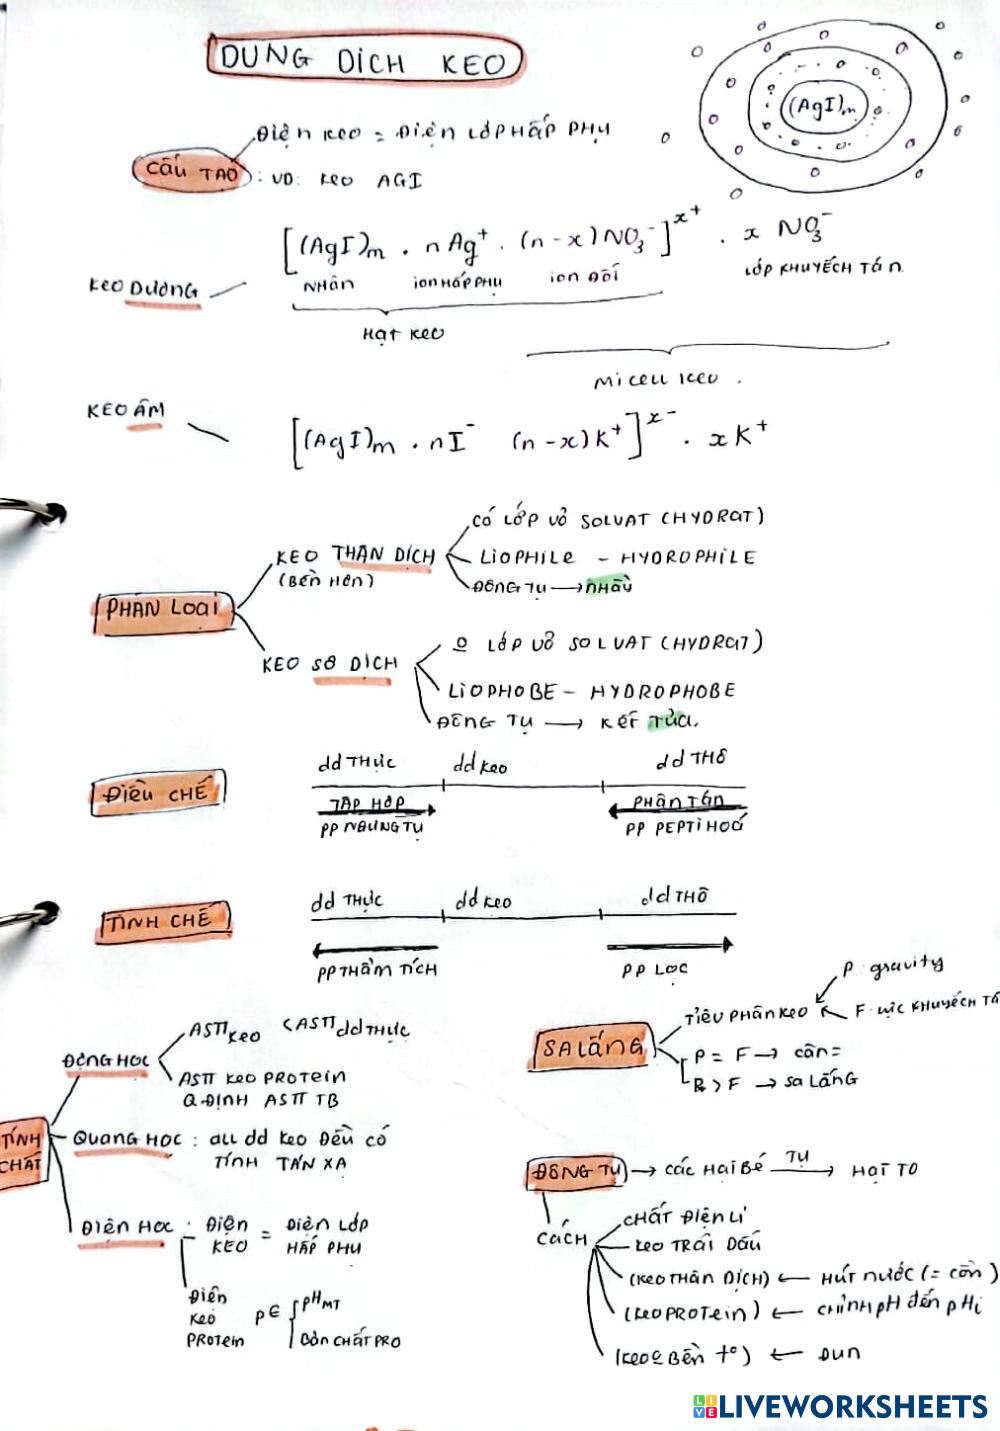 DUNG DỊCH KEO
(AgI)m
ĐIỆN KEO = ĐIỆN LỚP HẤP PHỤ
CẤU TẠO : VD: KEO AGI
[(AgI)m . nAg+ . (n-x)NO3-]x+ . x NO3-
NHÂN ION HẤP PHỤ ION ĐỐI LỚP KHUYẾCH TÁN
KEO DƯƠNG
HẠT KEO
MICELL KEO .
KEO ÂM
[(AgI)m . nI- (n-x)K+]x- . xK+
CÓ LỚP VỎ SOLVAT (HYDRAT)
KEO THÂN DỊCH LIOPHILE - HYDROPHILE
(BỀN HƠN) ĐÔNG TỤ → NHẦY
PHÂN LOẠI
O LỚP VỎ SOLVAT (HYDRAT)
KEO SƠ DỊCH
LIOPHOBE - HYDROPHOBE
ĐÔNG TỤ → KẾT TỦA.
dd THỰC dd KEO dd THÔ
ĐIỀU CHẾ
TẬP HỢP PHÂN TÁN
PP NGƯNG TỤ PP PEPTI HOÁ
dd THỰC dd KEO dd THÔ
TINH CHẾ
PP THẨM TÍCH PP LỌC
TÍNH CHẤT
ĐỘNG HỌC
ASTT KEO < ASTT dd THỰC
ASTT KEO PROTEIN
Q.ĐỊNH ASTT TB
QUANG HỌC : all dd KEO ĐỀU CÓ
TÍNH TÁN XẠ
ĐIỆN HỌC : ĐIỆN KEO = ĐIỆN LỚP HẤP PHỤ
ĐIỆN KEO PROTEIN P∈ { pHMT
BẢN CHẤT PRO
SA LẮNG
TIỂU PHÂN KEO
P: gravity
F: LỰC KHUYẾCH TÁ
P = F → CÂN =
P > F → SA LẮNG
ĐÔNG TỤ → CÁC HẠT BÉ TỤ → HẠT TO
CÁCH
CHẤT ĐIỆN LI
KEO TRÁI DẤU
(KEO THÂN DỊCH) ← HÚT NƯỚC (= CỒN)
(KEO PROTEIN) ← CHỈNH pH ĐẾN pHi
(KEO O BỀN t°) ← ĐUN
LIVE LIVEWORKSHEETS